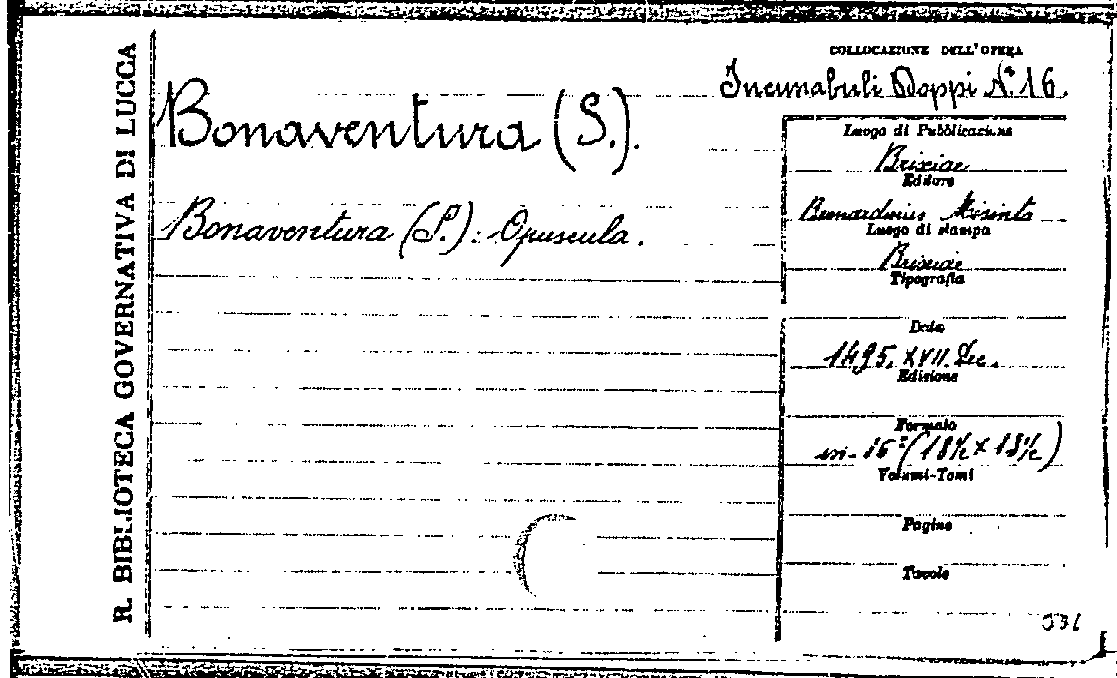 R. BIBLIOTECA GOVERNATIVA DI LUCCA
COLLOCAZIONE DELL'OPERA
Incunabuli Doppi N.° 16.
Bonaventura (S.).
Bonaventura (S.): Opuscula.
Luogo di Pubblicazione
Brixiae
Editore
Bernardinus Misinta
Luogo di stampa
Brixiae
Tipografia
Data
1495. XVII. Dec.
Edizione
Formato
in-16° (18½ × 13½)
Volumi-Tomi
Pagine
Tavole